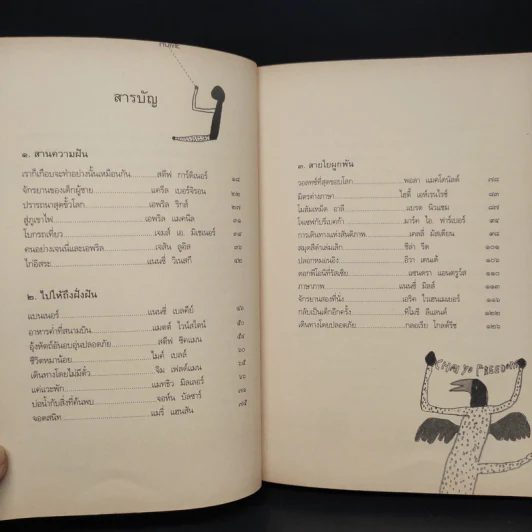 HOME
สารบัญ
๑. สานความฝัน
เราก็เกือบจะทำอย่างนั้นเหมือนกัน สตีฟ การ์ดิเนอร์ ๑๘
จักรยานของเด็กผู้ชาย แครีล เบอร์จิรอน ๒๒
ปรารถนาสุดขั้วโลก เอพริล ริกส์ ๒๗
สู่ภูเขาไฟ เอพริล แมคนีล ๓๑
ใบกระเที่ยว เจมส์ เอ. มิเชเนอร์ ๓๔
คนอย่างเจนนี่และเอพริล เจสัน ลูคิส ๓๙
ไก่อิสระ แนนซี่ วิเนสกี ๔๒
๒. ไปให้ถึงฝั่งฝัน
แบนเนอร์ แนนซี่ เบลคีย์ ๔๖
อาหารค่ำที่สนามบิน แมตต์ ไวน์สไตน์ ๕๐
อุ้งหัตถ์อันอบอุ่นปลอดภัย สตีฟ ซีคแมน ๕๗
ชีวิตหมาน้อย ไมค์ เบลล์ ๖๐
เดินทางโดยไม่มีตั๋ว จิม เฟลด์แมน ๖๕
แคแวะพัก แมทธิว มิลเลอร์ ๖๗
บ่อน้ำกับสิ่งที่ค้นพบ จอห์น บัลซาร์ ๗๒
จอดสนิท แมรี่ แฮนสัน ๗๕
๓. สายใยผูกพัน
วอลทซ์ที่สุดขอบโลก พอลา แมคโดนัลด์ ๗๘
มิตรต่างภาษา ไฮดี้ แอห์เรนไรช์ ๘๓
โมฮัมเหม็ด อาลี แบรด นิวแชม ๘๗
โจเซฟกับรีเบคก้า มาร์ค ไอ. ฟาร์เบอร์ ๙๑
การเดินทางแห่งสันติภาพ เคลลี่ มัสเตียน ๙๔
สมุดสีดำเล่มเล็ก ชีล่า รีด ๑๐๑
ปลอกหมอนอิง ธีวา เคนเต้ ๑๐๖
ดอกพีโอนีที่รัสเซีย แซนดรา แอนดรูว์ส ๑๑๑
ภาษาภาพ แนนซี่ มิลส์ ๑๑๓
จักรยานสองที่นั่ง เอริค ไวเฮนเมเยอร์ ๑๑๖
กลับเป็นเด็กอีกครั้ง ทิโมธี ลีแลนด์ ๑๒๒
เดินทางโดยปลอดภัย กลอเรีย โกลด์ริช ๑๒๖
FREEDOM